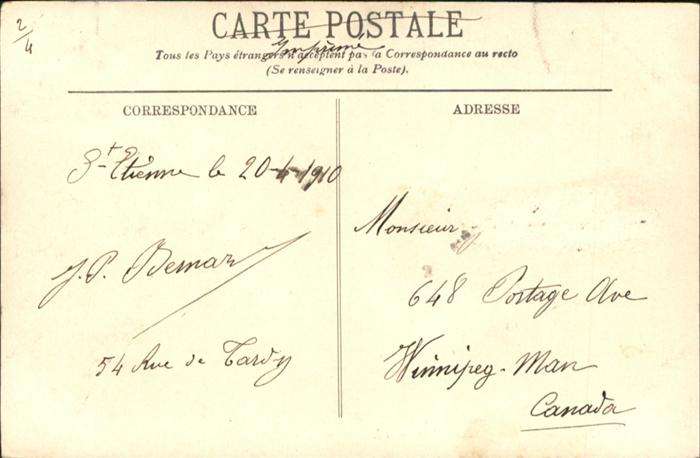 2/4
CARTE POSTALE
Imprimé
Tous les Pays étrangers n'acceptent pas la Correspondance au recto
(Se renseigner à la Poste).
CORRESPONDANCE
St Etienne le 20-4-1910
J. P. Bernard
54 Rue de Tardy
ADRESSE
Monsieur
648 Portage Ave
Winnipeg - Man
Canada